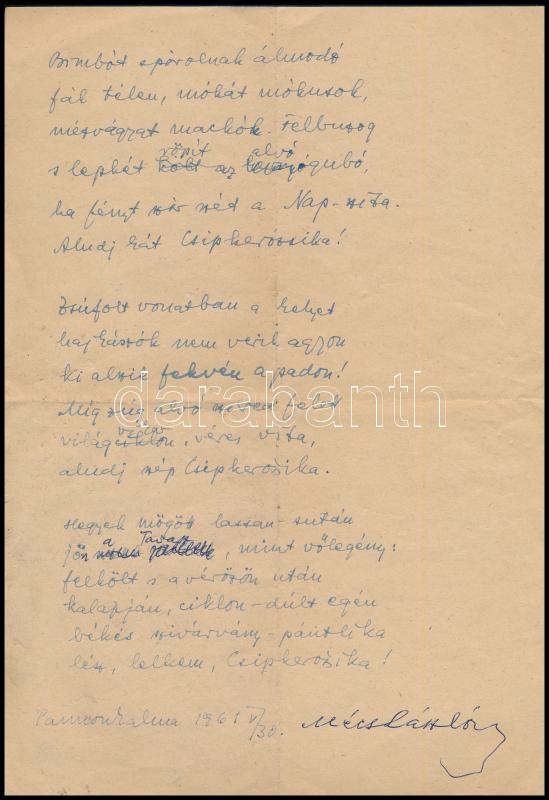 Bimbót spórolnak álmodó
fák télen, mókát mókusok,
mézvágyat mackók. Felbuzog
röpít alvó
s lepkét költ az gubó,
ha fényt szór szét a Nap-szita.
Aludj hát Csipkerózsika!
Zsúfolt vonatban a helyet
hajhászók nem verik agyon
ki alszik fekvén a padon!
Míg zúg alvó szíved felett
világciklon, véres vita,
aludj szép Csipkerózsika.
Hegyek mögött lassan-sután
jön a Tavasz, mint vőlegény:
felkölt s a vérözön után
kalapján, ciklon-dúlt egén
békés szivárvány-pántlika
lész, lelkem, Csipkerózsika!
Pannonhalma 1961 V/30.
Mécs László
darabanth